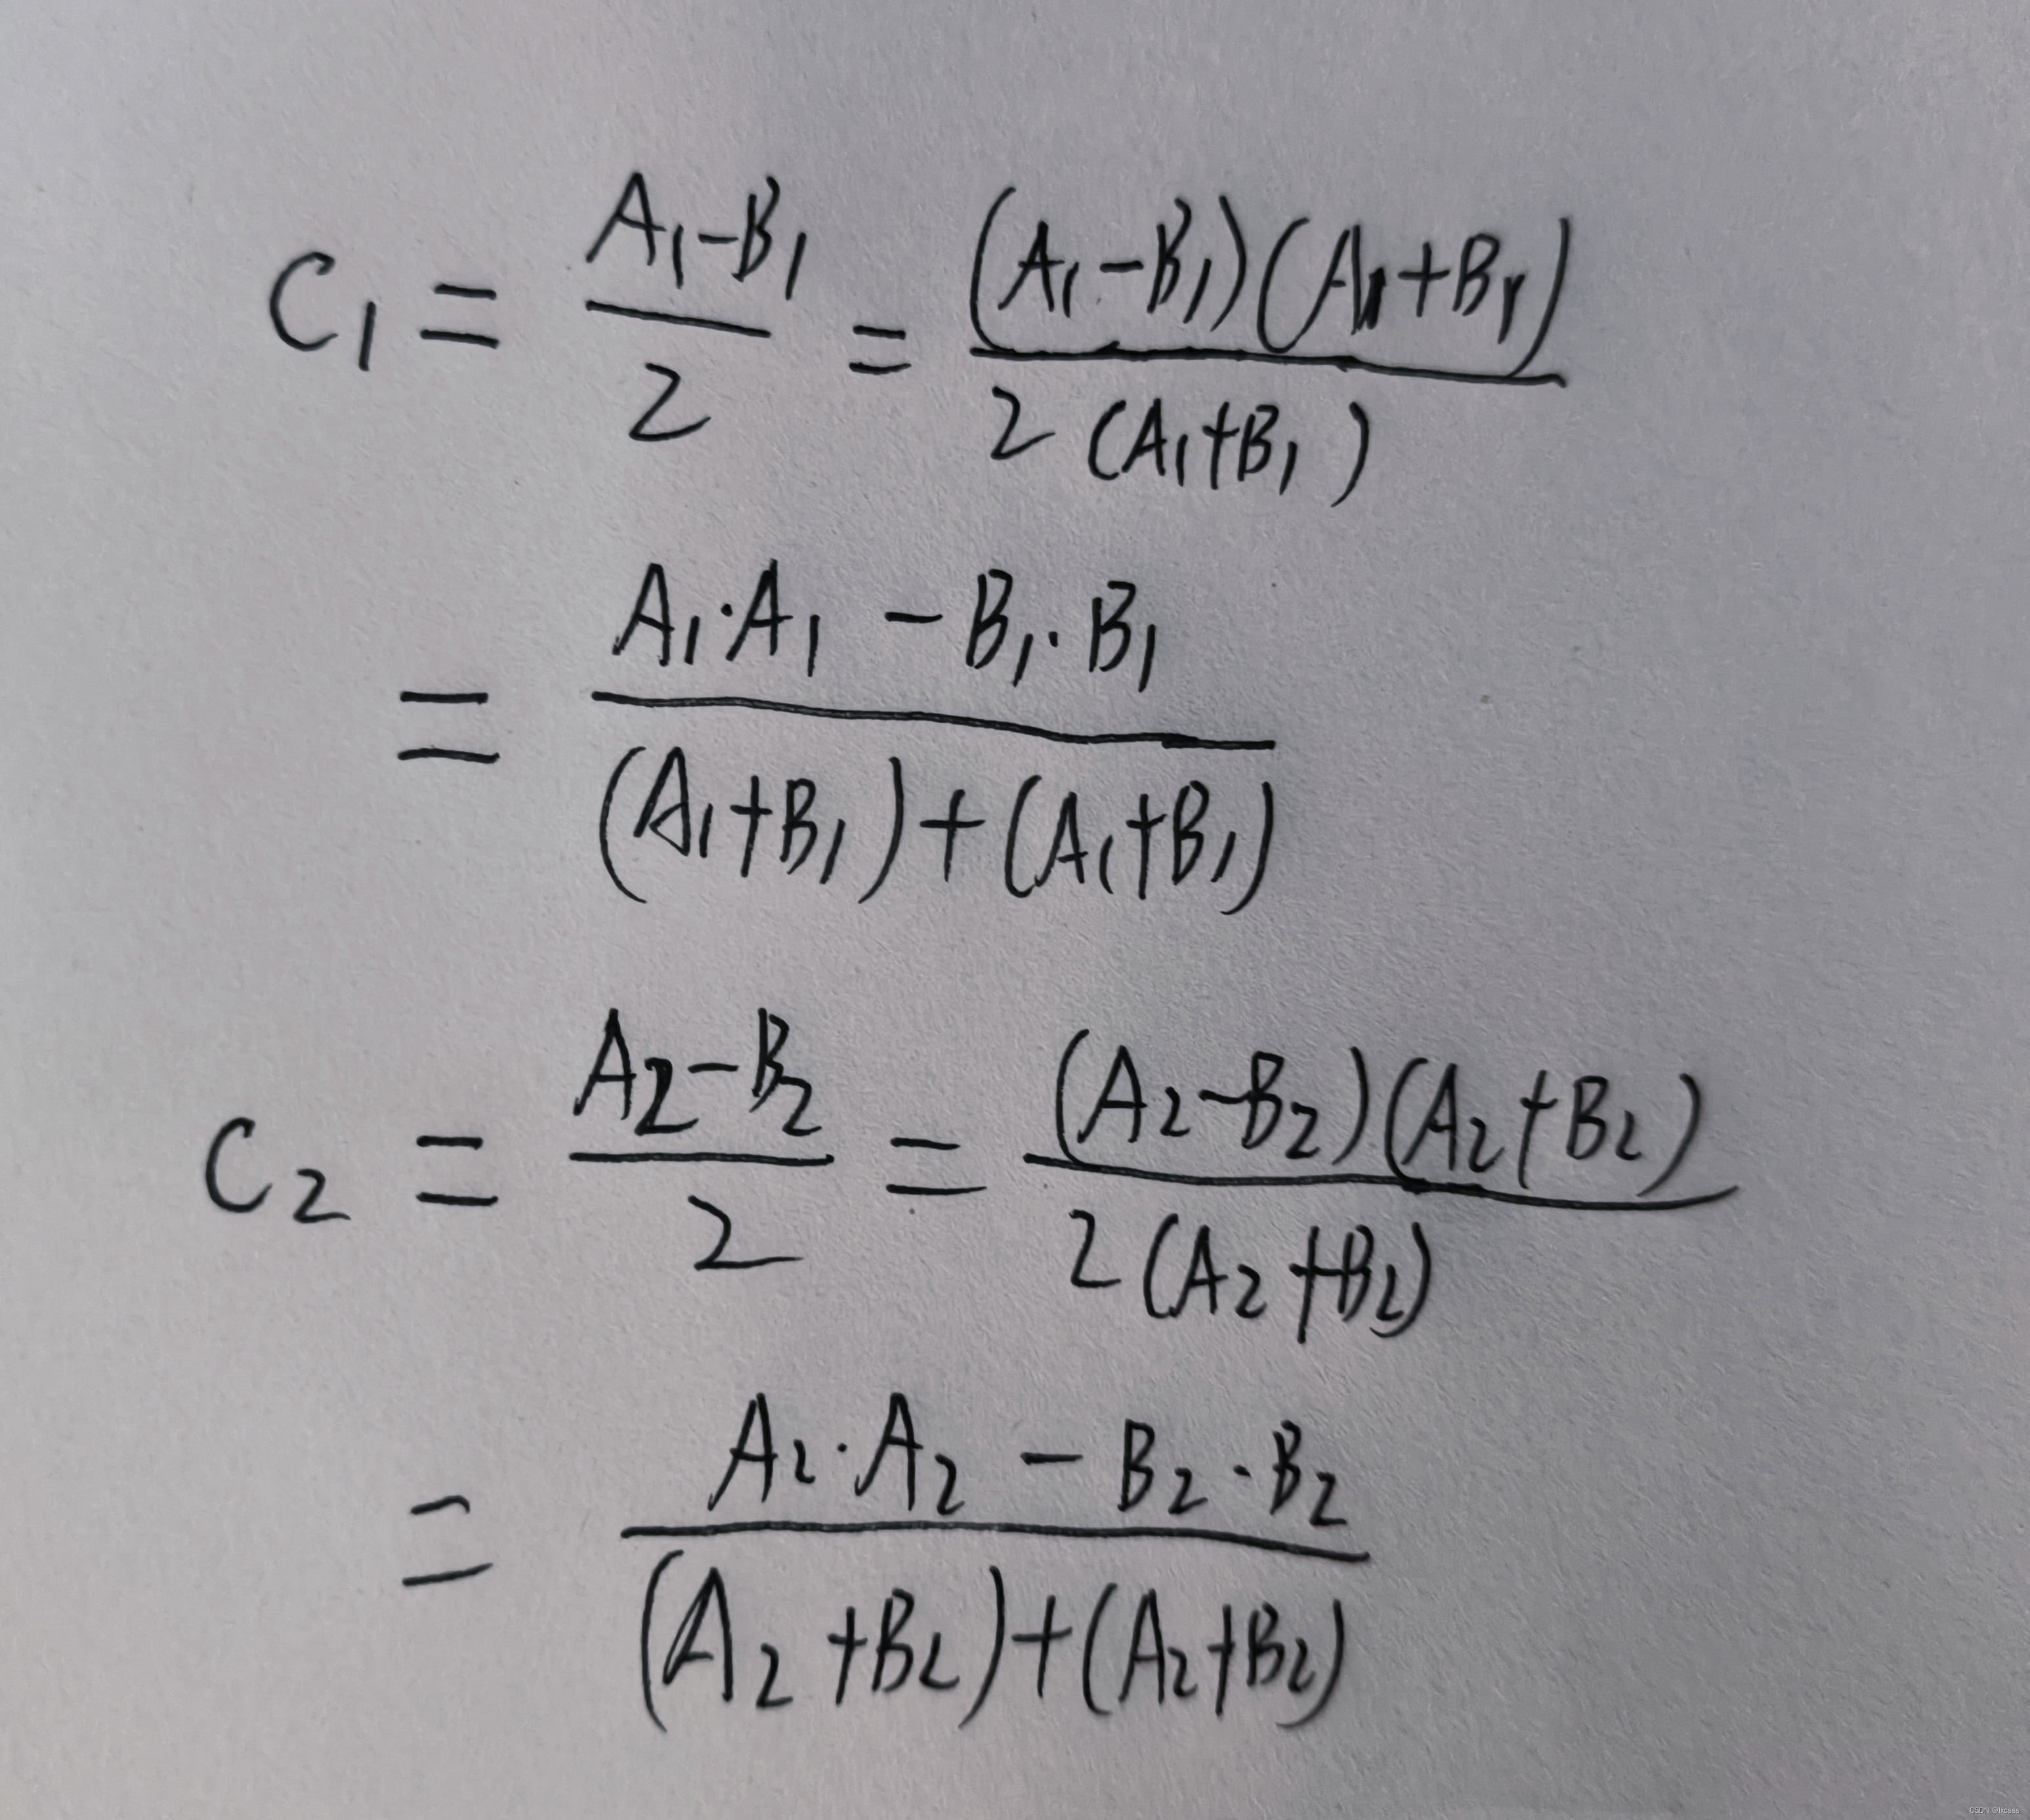 C₁ = (A₁-B₁)/2 = (A₁-B₁)(A₁+B₁)/2(A₁+B₁)
= (A₁·A₁ - B₁·B₁)/((A₁+B₁)+(A₁+B₁))
C₂ = (A₂-B₂)/2 = (A₂-B₂)(A₂+B₂)/2(A₂+B₂)
= (A₂·A₂ - B₂·B₂)/((A₂+B₂)+(A₂+B₂))